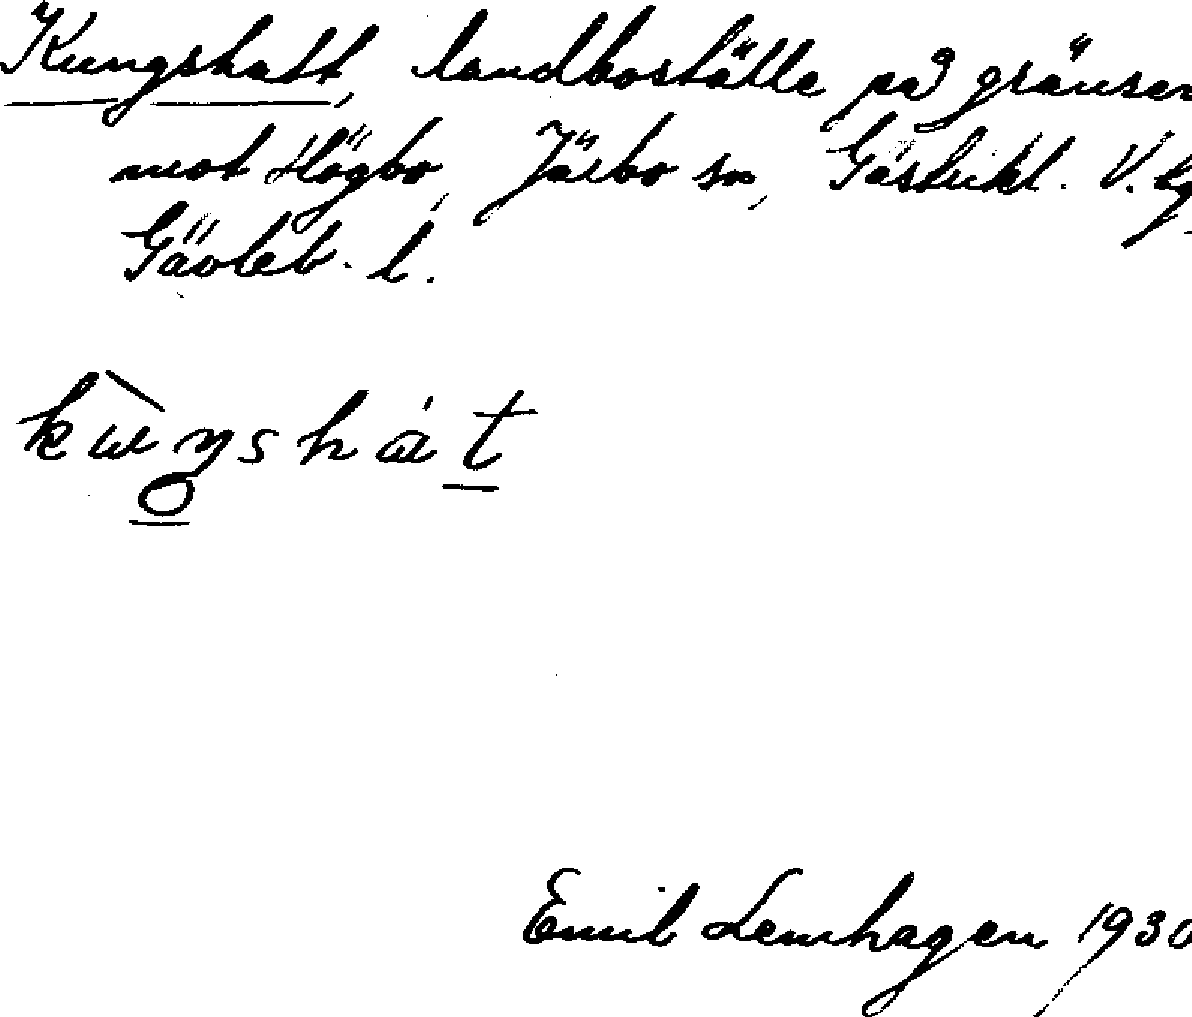 Kungshatt, landboställe på gränsen
mot Högbo, Järbo sn, Gästrikl. V. tg,
Gävleb. l.
kɯ̀ŋshát
Emil Lemhagen 1930